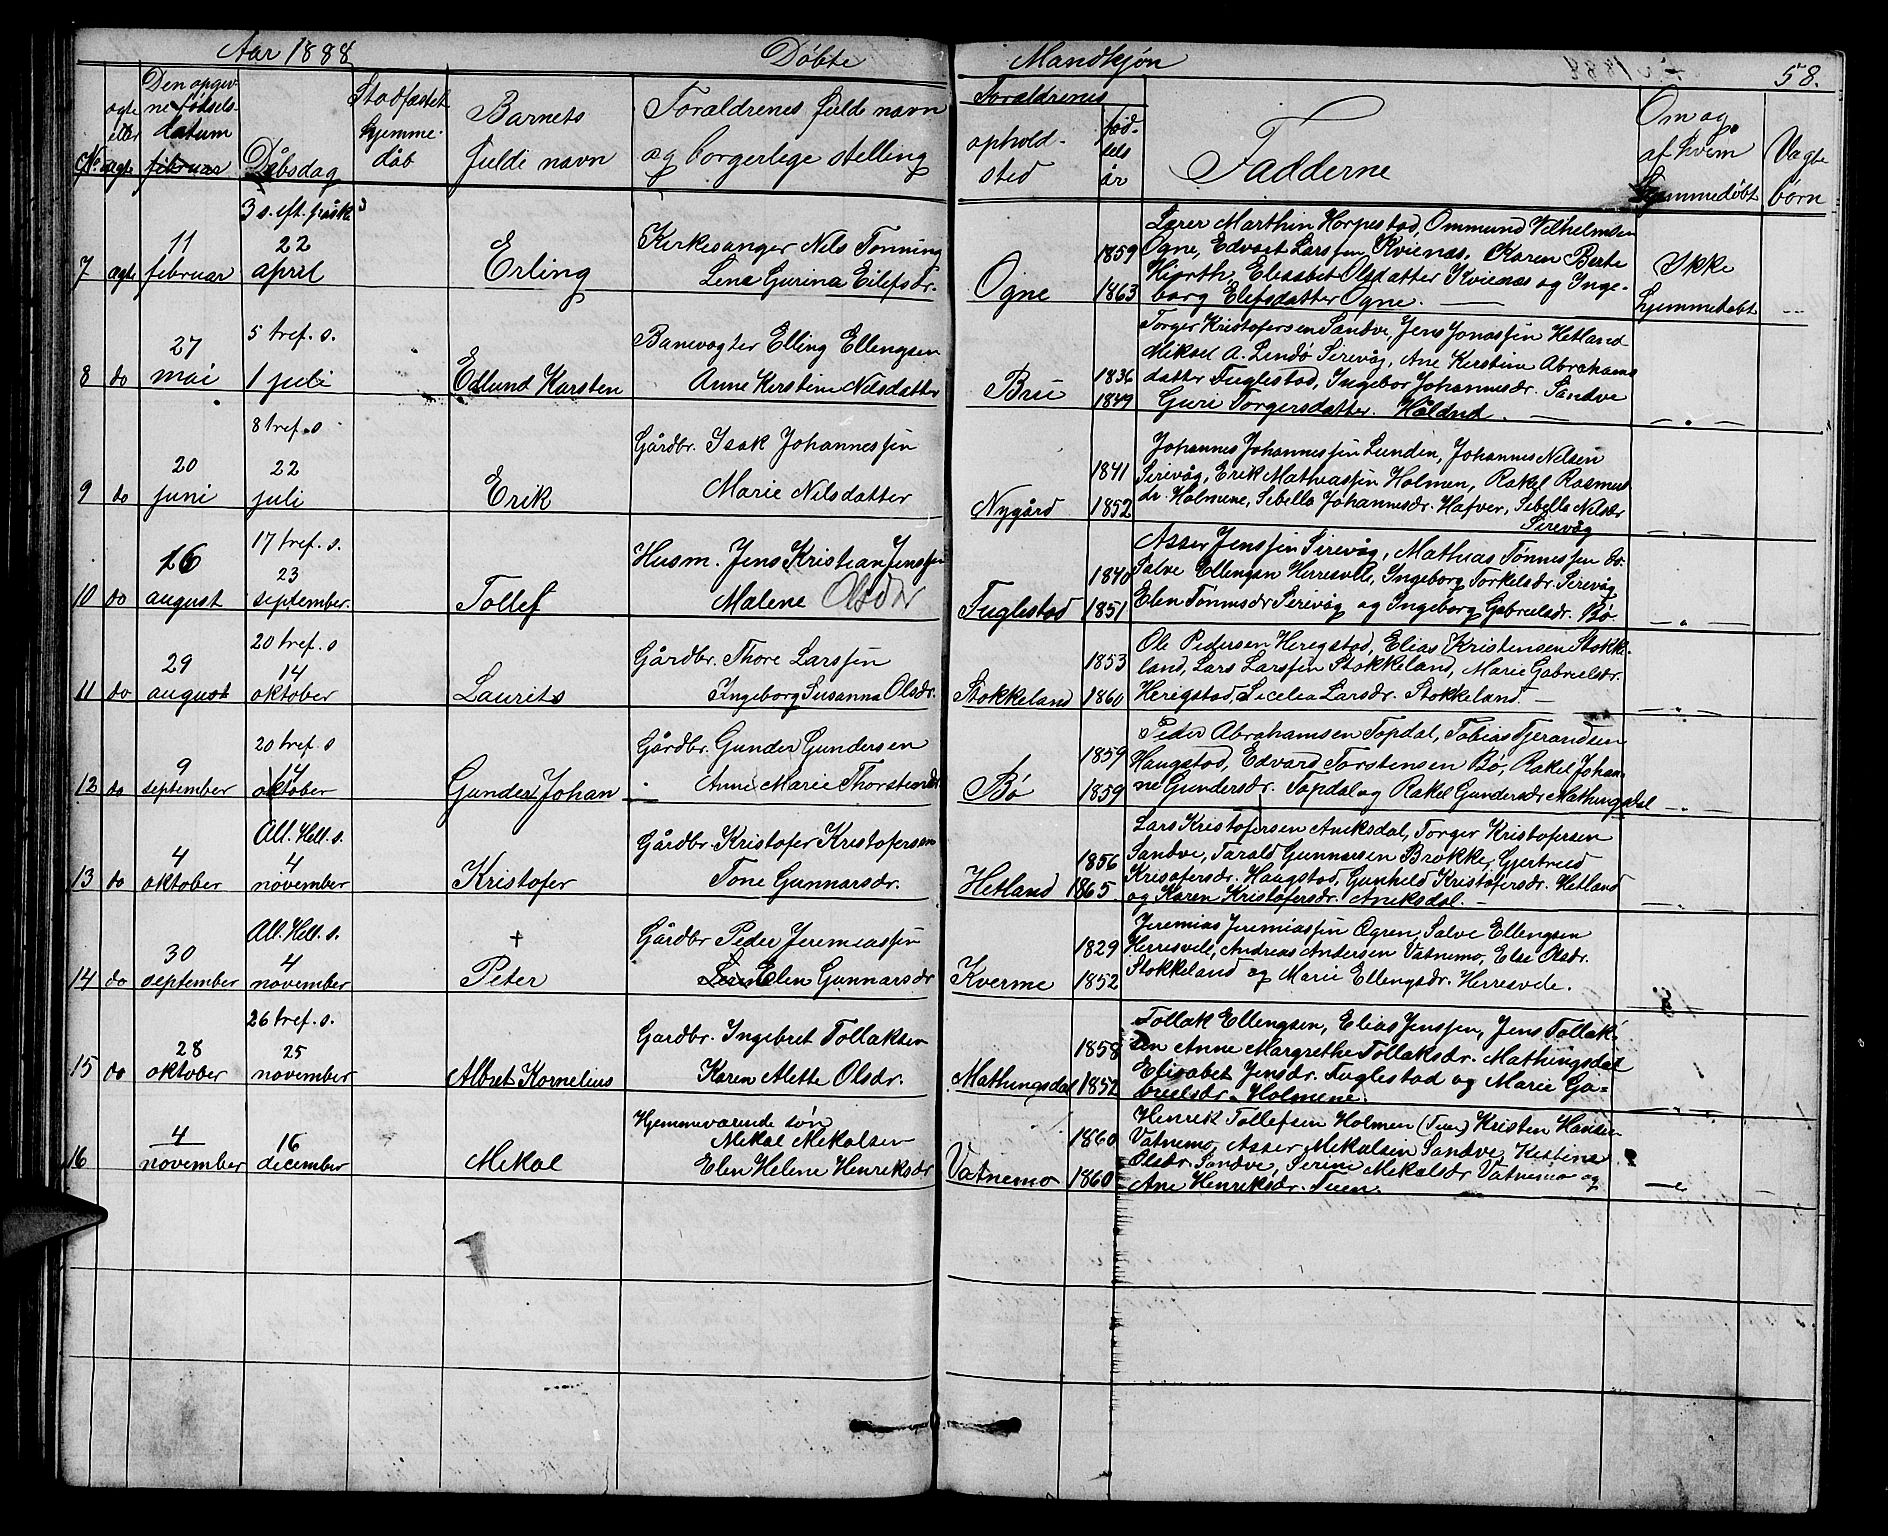 Aar 1888 Døbte Mandkjøn 58.
No. ægte eller uægte
Den opgivne fødselsdatum
februar
Dåbsdag
Stadfæstet hjemmedåb
Barnets fulde navn
Forældrenes fulde navn og borgerlige stelling
Forældrenes opholdsted
fødselsår
Fadderne
Om og af hvem hjemmedøbt
Vagte børn
3 s. eft. påske
7 ægte 11 februar 22 april
Erling
Kirkesanger Nils Tønning
Lena Gurina Eilefsdr.
Ogne
1859
1863
Lærer Marthin Horpestad, Ommund Vilhelmsen
Ogne, Edvart Larssen Kvienæs. Karen Berte
Hiorth, Elisabet Olsdatter Kvienæs og Inge-
borg Elefsdatter Ogne.
Ikke hjemmedøbt
5 tref. s.
8 do 27 mai 1 juli
Edlund Karsten
Banevogter Elling Ellengsen
Anne Kerstine Nilsdatter
Brue
1836
1849
Torger Kristofersen Sandve, Jens Jonassen Hetland
Mikael A. Lendø Sirevåg, Ane Kerstine Abrahams
datter Fuglestad, Ingebor Johannesdr. Sandve
Guri Torgersdatter. Høland.
8 tref. s.
9 do 20 juni 22 juli
Erik
Gårdbr. Isak Johannessen
Marie Nilsdatter
Nygård
1841
1852
Johannes Johannessen Lunden, Johannes Nelsen
Sirevåg, Erik Mathiassen Holmen, Rakel Rasmus
dr. Holmene, Sibella Johannesdr. Hafver, Sibella Nilsdr
Sirevåg
17 tref. s.
10 do 26 august 23 september.
Tollef
Husm. Jens Kristian Jenssen
Malene Olsdtr
Fuglestad
1840
1851
Asser Jenssen Sirevåg, Mathias Tønnessen do.
Salve Ellengsen Herresvele, Ingeborg Torkelsdr. Sirevåg
Elen Tønnesdr Sirevåg og Ingeborg Gabrielsdr. Bø
20 tref. s
11 do 29 august 14 oktober
Laurits
Gårdbr. Thore Larssen
Ingeborg Susanna Olsdr.
Stokkeland
1853
1860
Ole Pedersen Heregstad, Elias Kristensen Stokke-
land, Lars Larssen Stokkeland, Marie Gabrielsdr.
Heregstad, Sicelea Larsdr. Stokkeland.
20 tref. s
12 do 9 september 14 oktober
Gunder Johan
Gårdbr. Gunder Gundersen
Anne Marie Thorstensdr
Bø
1859
1859
Peder Abrahamsen Topdal, Tobias Tjerandsen
Haugstad, Edvard Torstensen Bø, Rakel Johan-
ne Gundersdr. Topdal og Rakel Gundersdr Mathingsdal
All. Hell. s.
13 do 4 oktober 4 november
Kristofer
Gårdbr. Kristofer Kristofersen
Tone Gunnarsdr.
Hetland
1856
1865.
Lars Kristofersen Aneksdal, Torger Kristofersen
Sandve, Tarald Gunnarsen Brokke, Gjertrued
Krisofersdr. Haugstad, Gunheld Kristofersdr. Hetland
og Karen Kristofersdr. Aneksdal.
All. Hell. s.
14 do 30 september 4 november
+
Peter
Gårdbr Peder Jeremiassen
Elen Gunnarsdr
Kverme
1829
1852
Jeremias Jeremiassen Ogren, Salve Ellengsen
Herresvele, Andreas Andersen Vatnemo, Else Olsdr.
Stokkeland og Marie Ellengsdr. Herresvele.
26 tref. s.
15 do 28 oktober 25 november
Albret Kornelius
Gardbr. Ingebret Tollaksen
Karen Alette Olsdr.
Mathingsdal
1858
1852
Tollak Ellengsen, Elias Jenssen, Jens Tollak-
sen Anne Margrethe Tollaksdr. Mathingsdal
Elisabet Jensdr. Fuglestad og Marie Ga-
brielsdr. Holmene.
16 4 november 16 december
Mekal
Hjemmeværende søn
Mekal Mekalsen
Elen Helene Henriksdr
Vatnemo
1860
1860
Henrik Tollefsen Holmen (Tuen) Kristen Hansen
Vatnemo, Asser Mekalsen Sandve, Kestena
Olsdr. Sandve, Serine Mekalsdr Vatnemo og
Ane Henriksdr. Tuen.